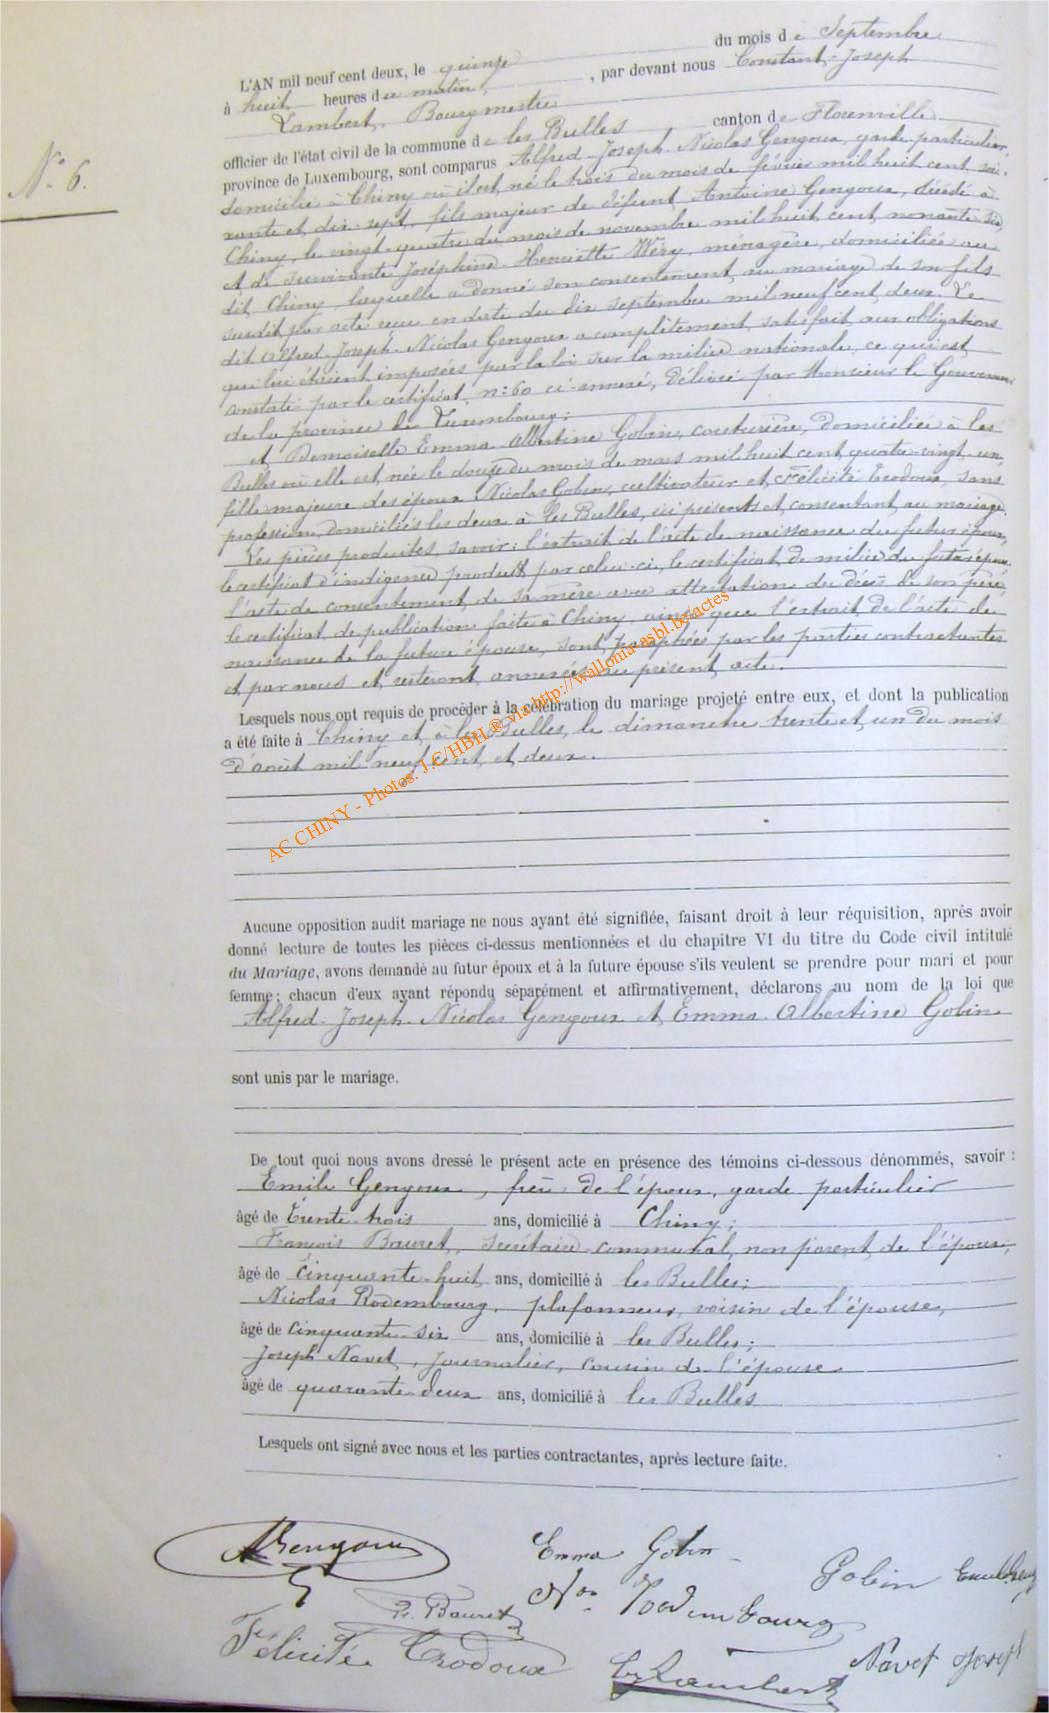 N° 6.
L'AN mil neuf cent deux, le quinze du mois de Septembre
à huit heures du matin, par devant nous Constant-Joseph
Lambert, Bourgmestre
officier de l'état civil de la commune de les Bulles canton de Florenville
province de Luxembourg, sont comparus Alfred-Joseph-Nicolas Gengoux, garde-particulier,
domicilié à Chiny où il est né le trois du mois de février mil huit cent soi-
xante et dix-sept, fils majeur de défunt Antoine Gengoux, décédé à
Chiny, le vingt-quatre du mois de novembre mil huit cent nonante six,
et de survivante Joséphine-Henriette Wéry, ménagère, domiciliée au
dit Chiny, laquelle a donné son consentement au mariage de son fils
susdit par acte reçu en date du dix septembre mil neuf cent deux. Le
dit Alfred-Joseph-Nicolas Gengoux a complètement satisfait aux obligations
qui lui étaient imposées par la loi sur la milice nationale, ce qui est
constaté par le certificat n° 60 ci-annexé, délivré par Monsieur le Gouverneur
de la province de Luxembourg;
et Demoiselle Emma-Albertine Gobin, couturière, domiciliée à les
Bulles où elle est née le douze du mois de mars mil huit cent quatre-vingt-un,
fille majeure des époux Nicolas Gobin, cultivateur et Félicité Crodoux, sans
profession, domiciliés les deux à les Bulles, ici présents et consentant au mariage.
Les pièces produites, savoir: l'extrait de l'acte de naissance du futur époux,
le certificat d'indigence produit par celui-ci, le certificat de milice du futur époux
l'acte de consentement de sa mère avec attestation du décès de son père,
le certificat de publication faite à Chiny, ainsi que l'extrait de l'acte de
naissance de la future épouse, sont paraphées par les parties contractantes
et par nous et resteront annexées au présent acte.
Lesquels nous ont requis de procéder à la célébration du mariage projeté entre eux, et dont la publication
a été faite à Chiny et à les Bulles, le dimanche trente et un du mois
d'août mil neuf cent et deux.
AC CHINY - Photos: J.C/HBH® via http://wallonia-asbl.be/actes
Aucune opposition audit mariage ne nous ayant été signifiée, faisant droit à leur réquisition, après avoir
donné lecture de toutes les pièces ci-dessus mentionnées et du chapitre VI du titre du Code civil intitulé
du Mariage, avons demandé au futur époux et à la future épouse s'ils veulent se prendre pour mari et pour
femme; chacun d'eux ayant répondu séparément et affirmativement, déclarons au nom de la loi que
Alfred-Joseph-Nicolas Gengoux et Emma-Albertine Gobin
sont unis par le mariage.
De tout quoi nous avons dressé le présent acte en présence des témoins ci-dessous dénommés, savoir :
Emile Gengoux, frère de l'époux, garde particulier
âgé de trente-trois ans, domicilié à Chiny;
François Bauret, secrétaire communal, non parent de l'époux;
âgé de cinquante-huit ans, domicilié à les Bulles;
Nicolas Rodembourg, plafonneur, voisin de l'épouse,
âgé de cinquante-six ans, domicilié à les Bulles;
Joseph Navet, journalier, cousin de l'épouse
âgé de quarante-deux ans, domicilié à les Bulles
Lesquels ont signé avec nous et les parties contractantes, après lecture faite.
AGengoux Emma Gobin
Gobin
F. Bauret Nas Rodembourg
Félicitée Crodoux Navet Joseph
CJLambert